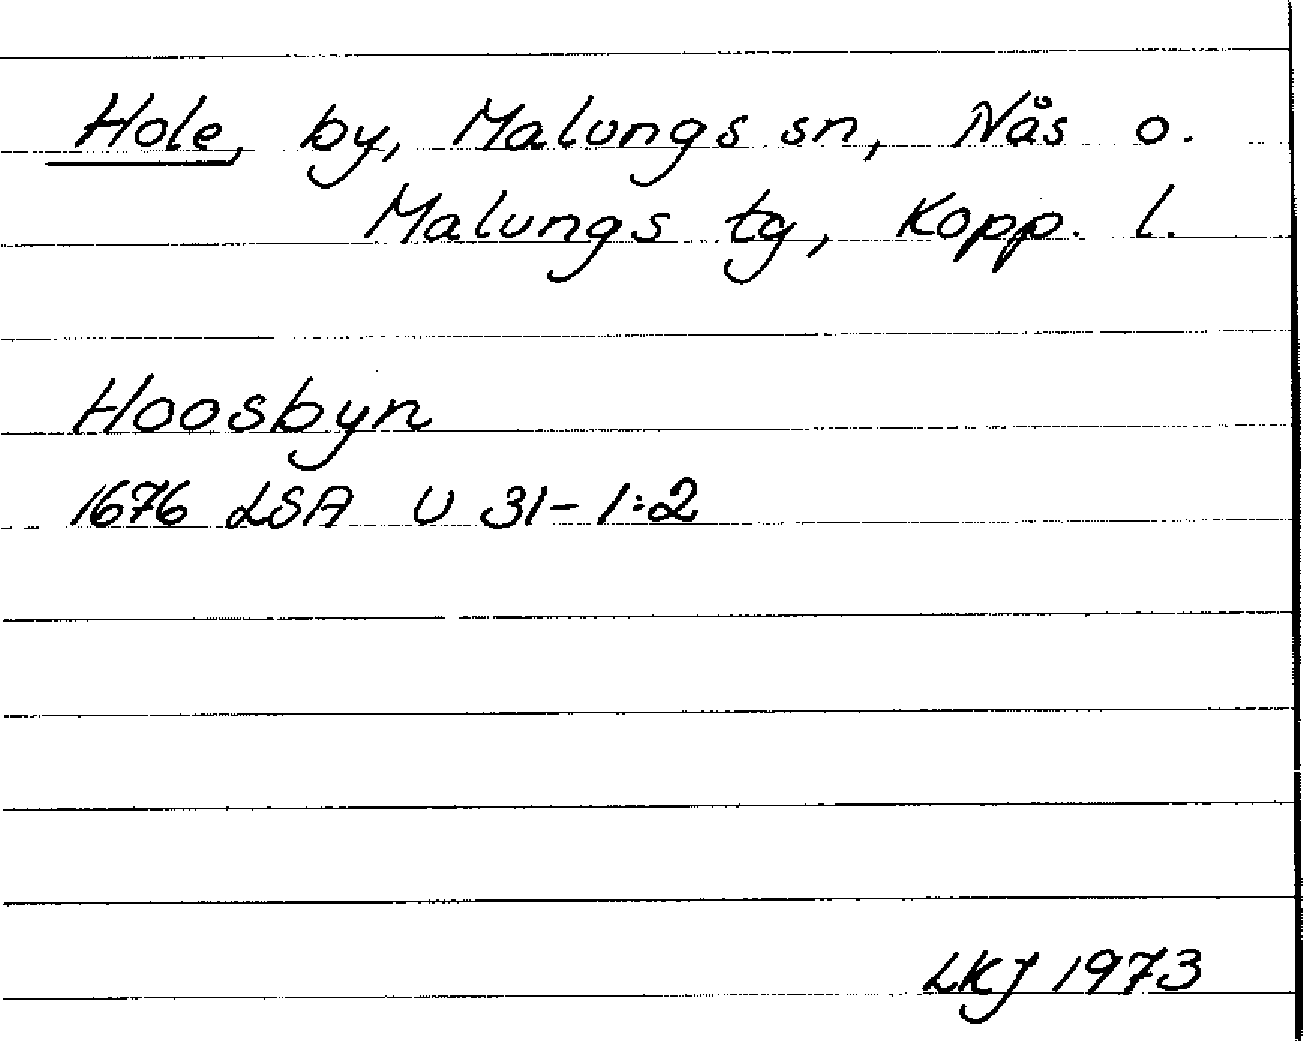 Hole, by, Malungs sn, Nås o.
Malungs tg, Kopp. l.
Hoosbyn
1676 LSA U 31-1:2
LKJ 1973